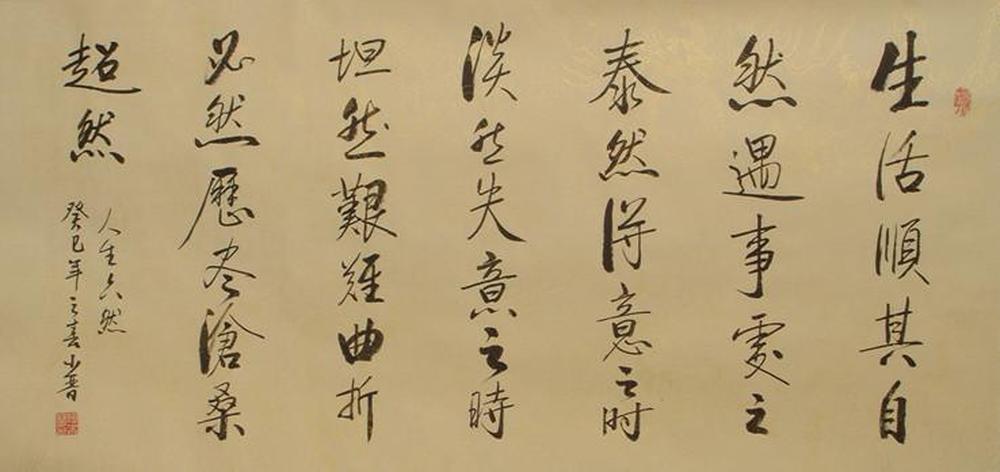 生活順其自
然遇事處之
泰然得意之时
淡然失意之時
坦然艱難曲折
必然歷尽滄桑
超然
人生六然
癸巳年之春小晉